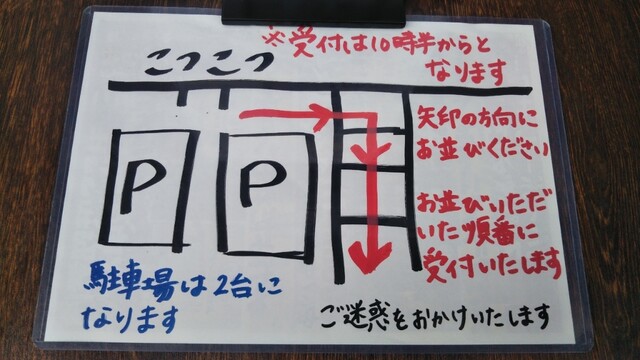 ※受付は10時半からと
なります
こつこつ
矢印の方向に
お並びください
P
P
お並びいただ
いた順番に
受付いたします
駐車場は2台に
なります
ご迷惑をおかけいたします